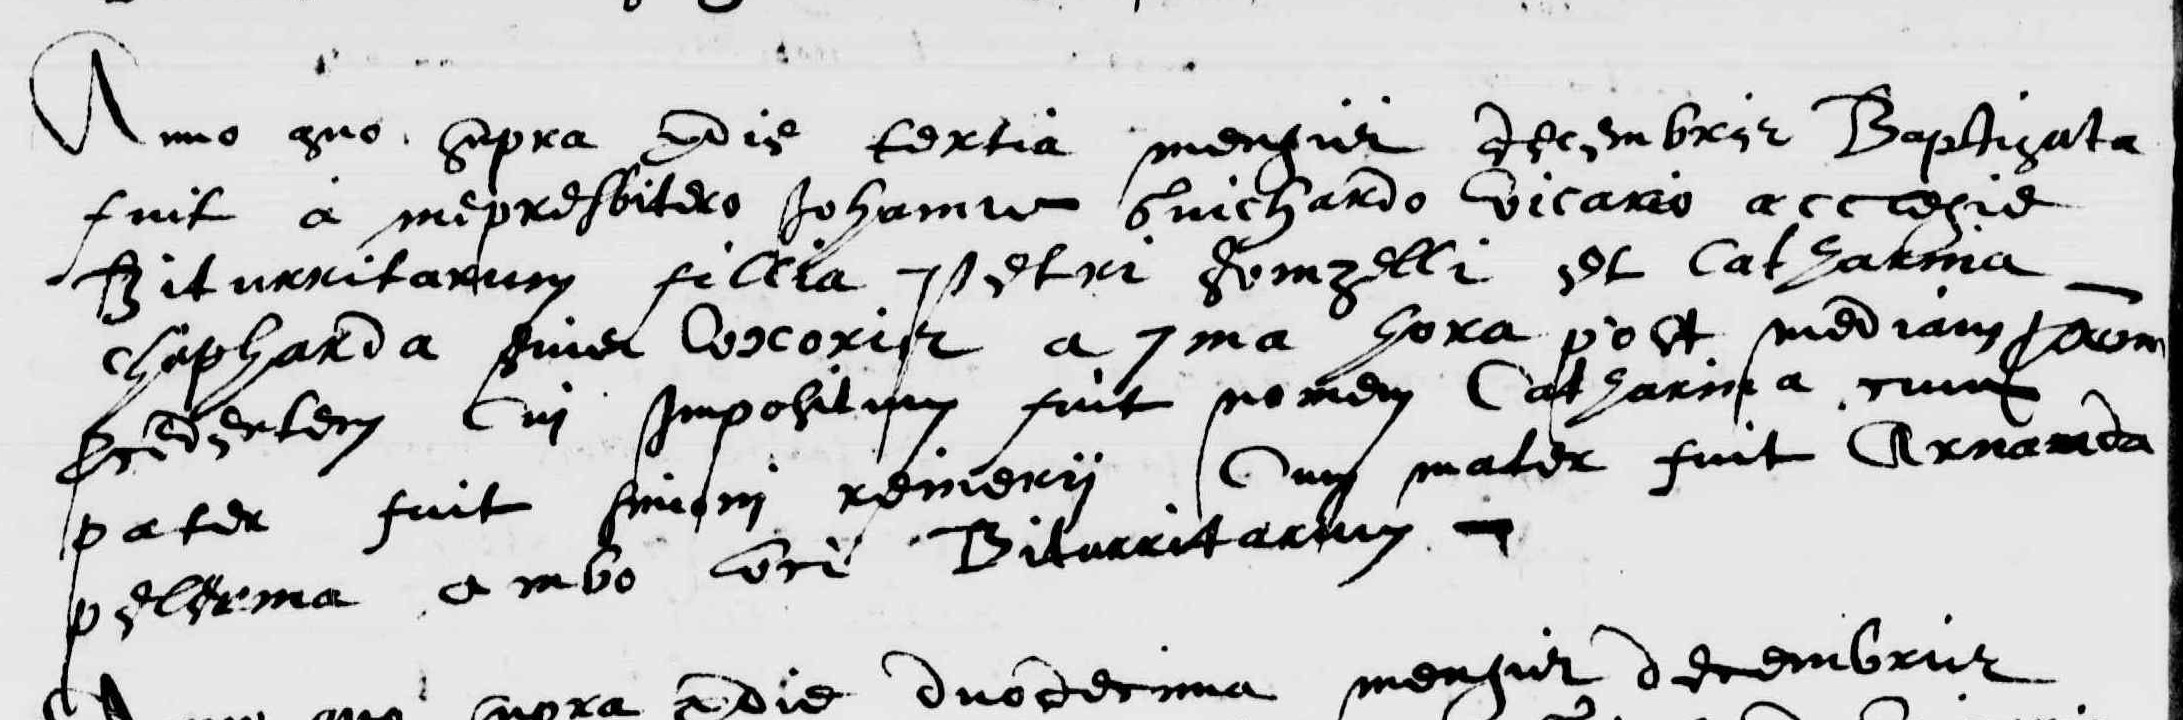 Anno quo supra & die tertia mensis decembris Baptizata
fuit a me presbitero Johanne Guichardo vicario ecclesie
Biturritarum fillia Petri gomzelli et Catharina
chapharda eius uxoris a 7ma hora post mediam
precedentem Cui Impositum fuit nomen Catharina cuius
pater fuit simoni reinerij Cum mater fuit Arnamda
pelerina ambo loci Biturritarum
Anno quo supra & die duodecima mensis decembris